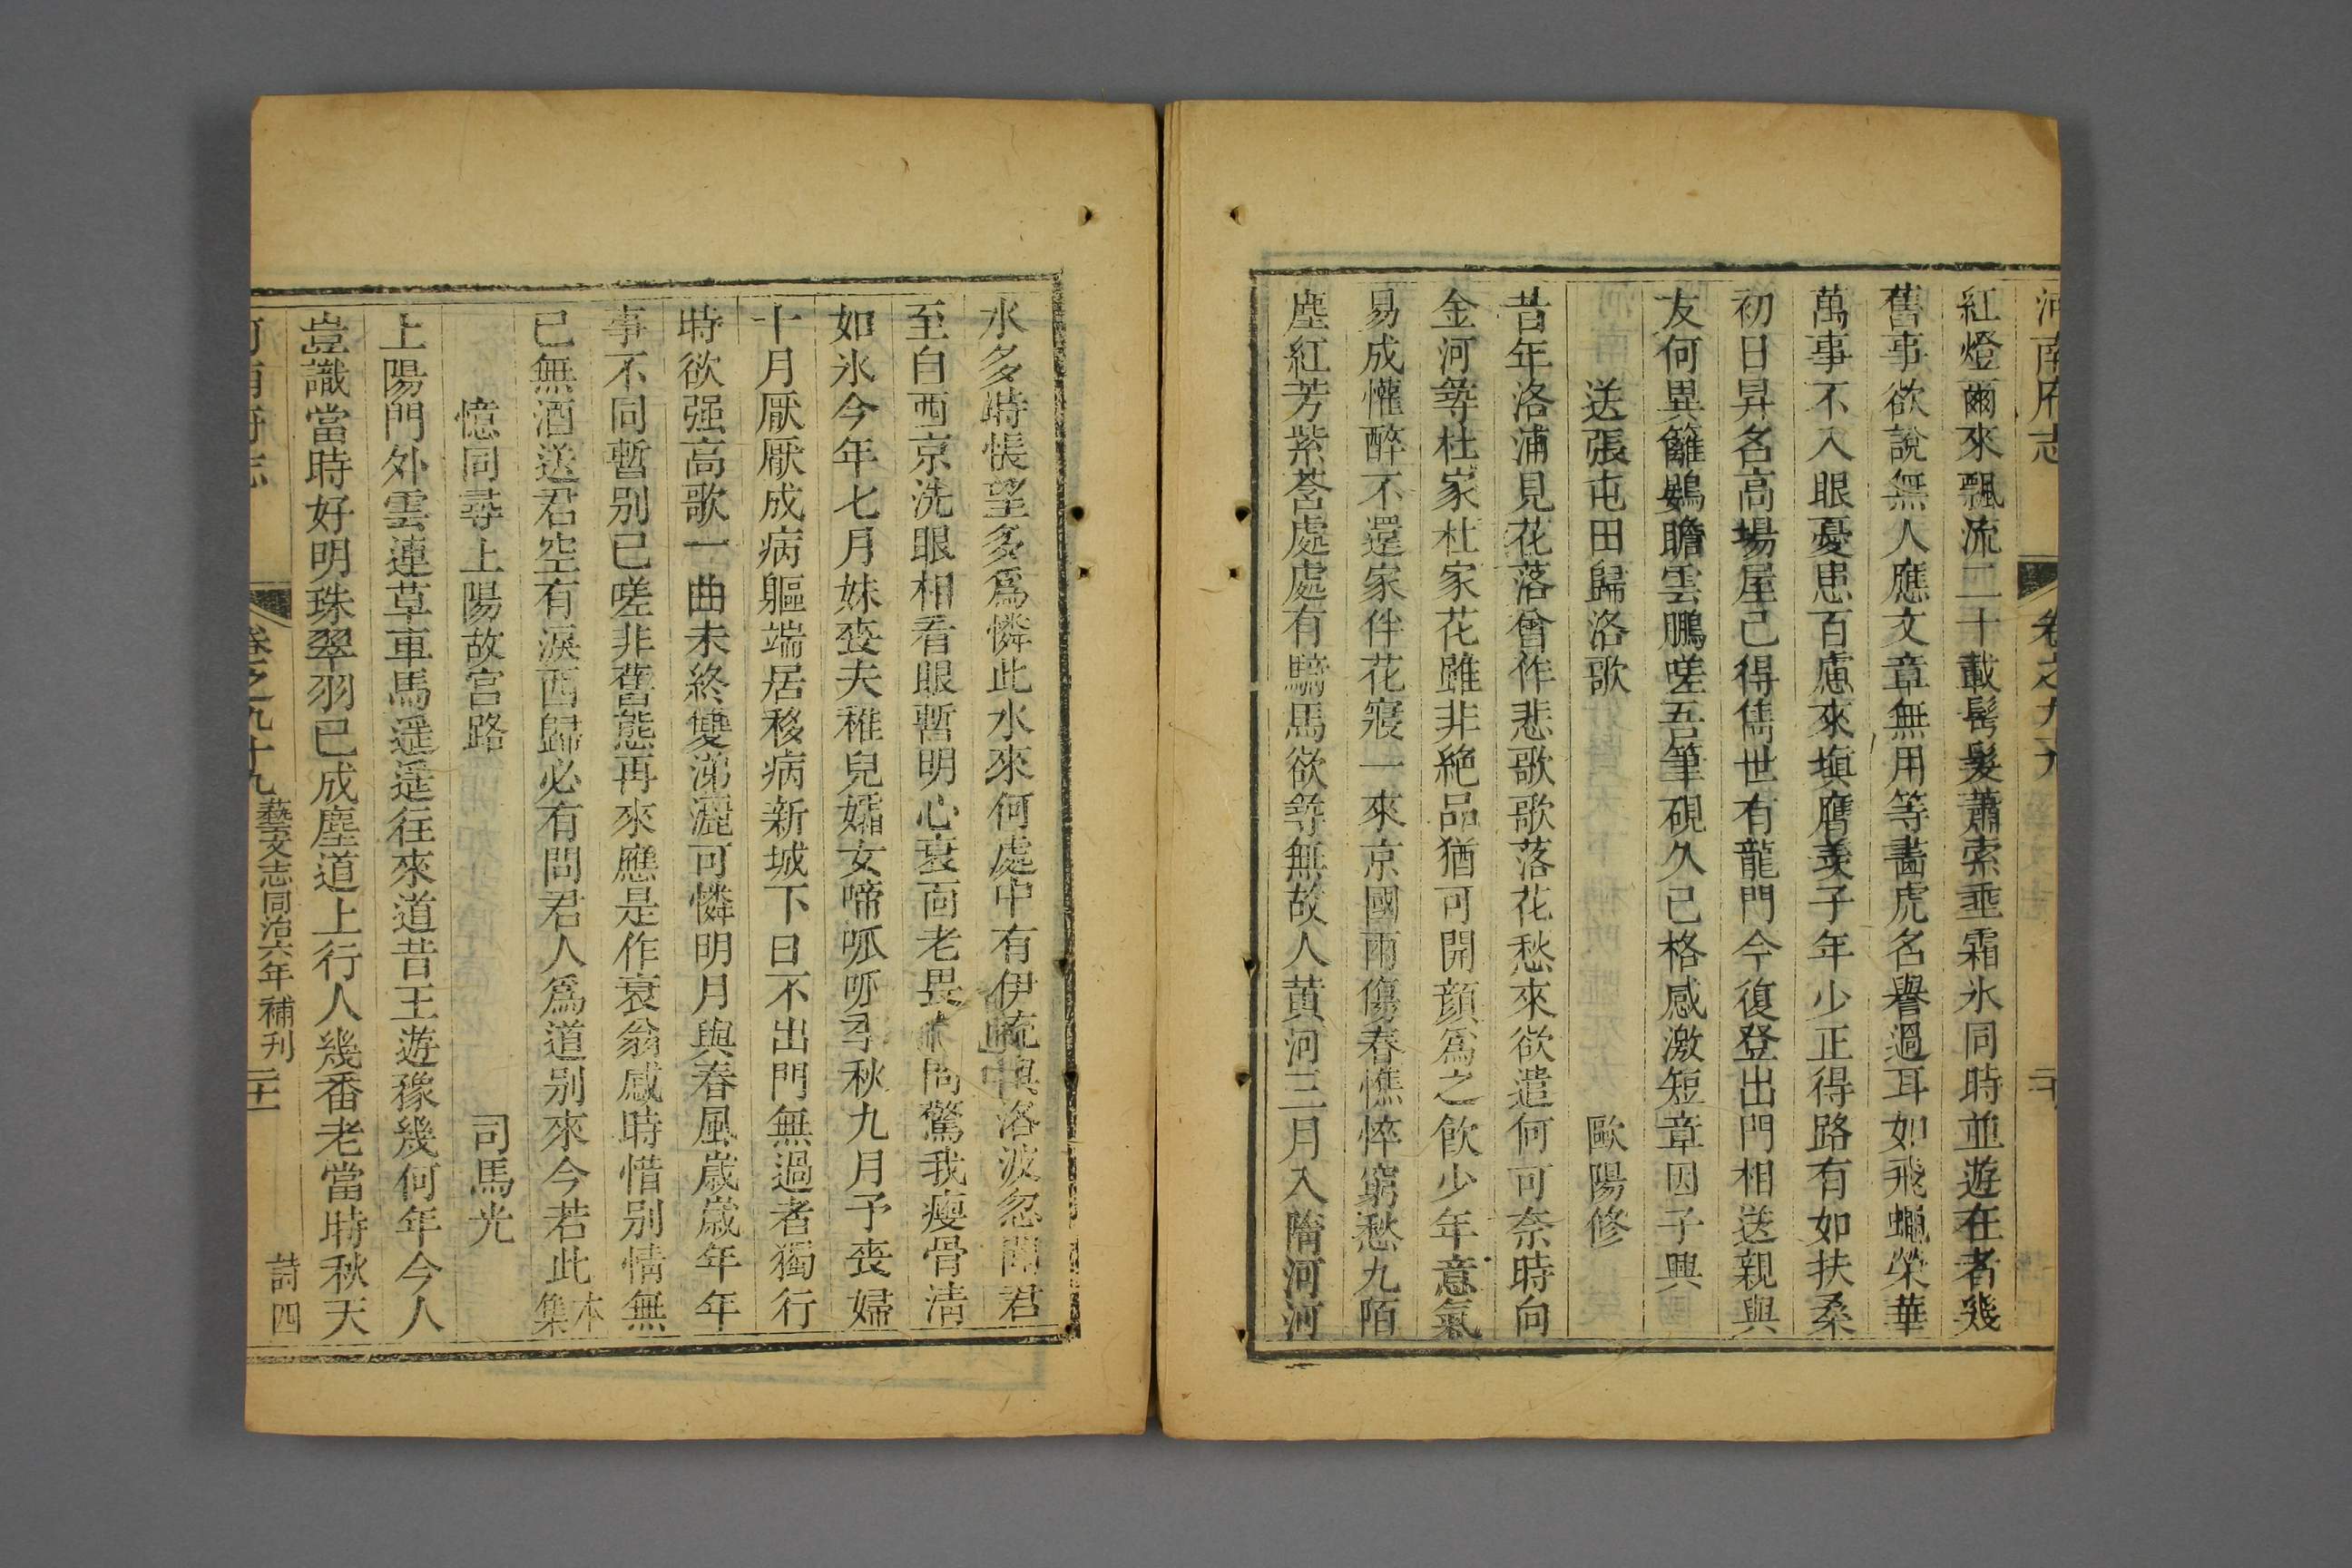 河南府志 卷之九十九 二十
紅燈爾來飄流二十載髩髮蕭索垂霜氷同時並遊在者幾
舊事欲說無人應文章無用等畵虎名譽過耳如飛蠅榮華
萬事不入眼憂患百慮來塡膺羨子年少正得路有如扶桑
初日昇名高場屋已得儁世有龍門今復登出門相送親與
友何異籬鷃瞻雲鵬嗟吾筆硯久已格感激短章因子興
送張屯田歸洛歌 歐陽修
昔年洛浦見花落曾作悲歌歌落花愁來欲遣何可奈時向
金河尋杜家杜家花雖非絶品猶可開顔爲之飮少年意氣
易成懽醉不還家伴花寢一來京國兩傷春憔悴窮愁九陌
塵紅芳紫萼處處有騎馬欲尋無故人黃河三月入隋河河
水多時悵望多爲憐此水來何處中有伊流與洛波忽聞君
至自西京洗眼相看眼暫明心衰面老畏人問驚我瘦骨淸
如氷今年七月妹喪夫稚兒孀女啼呱呱季秋九月予喪婦
十月厭厭成病軀端居移病新城下日不出門無過者獨行
時欲强高歌一曲未終雙涕灑可憐明月與春風歲歲年年
事不同暫别已嗟非舊態再來應是作衰翁感時惜别情無
已無酒送君空有淚西歸必有問君人爲道别來今若此 本集
憶同尋上陽故宮路 司馬光
上陽門外雲連草車馬遥遥往來道昔王遊豫幾何年今人
豈識當時好明珠翠羽已成塵道上行人幾番老當時秋天
河南府志 卷之九十九 藝文志同治六年補刋 二十一 詩四